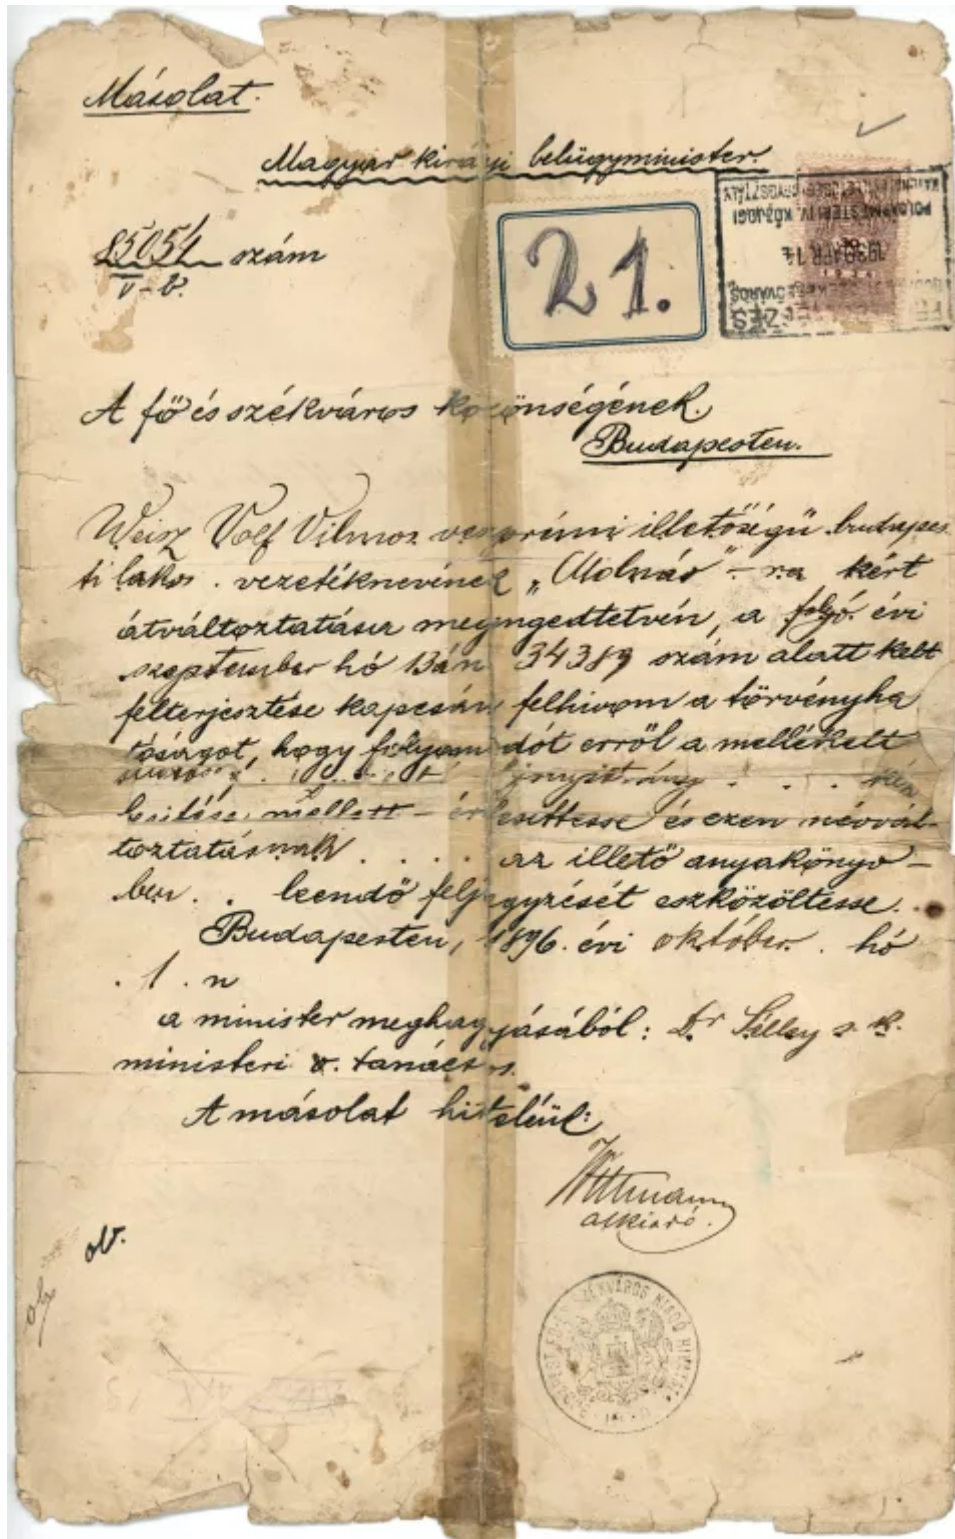 Másolat.
Magyar királyi belügyminister.
85051 szám
V-b.
21.
1939 APR 14
POLGÁRMESTERI IV. KÖZJOGI
A fő és székváros közönségének.
Budapesten.
Weisz Volf Vilmos veszprémi illetőségü budapes
ti lakos . vezetéknevének „Molnár"-ra kért
átváltoztatása megengedtetvén, a folyó évi
szeptember hó 13án 34389 szám alatt kelt
felterjesztése kapcsán felhivom a törvényha
tóságot, hogy folyamodót erről a mellékelt
mellett - értesittesse és ezen névvál-
toztatásnak . . . . az illető anyakönyv-
ben . . leendő feljegyzését eszközöltesse.
Budapesten, 1896. évi október . hó
. 1 . n
a minister meghagyásából: Dr Selley s. k.
ministeri o. tanácsos.
A másolat hiteléül:
Wittmann
alkiadó.